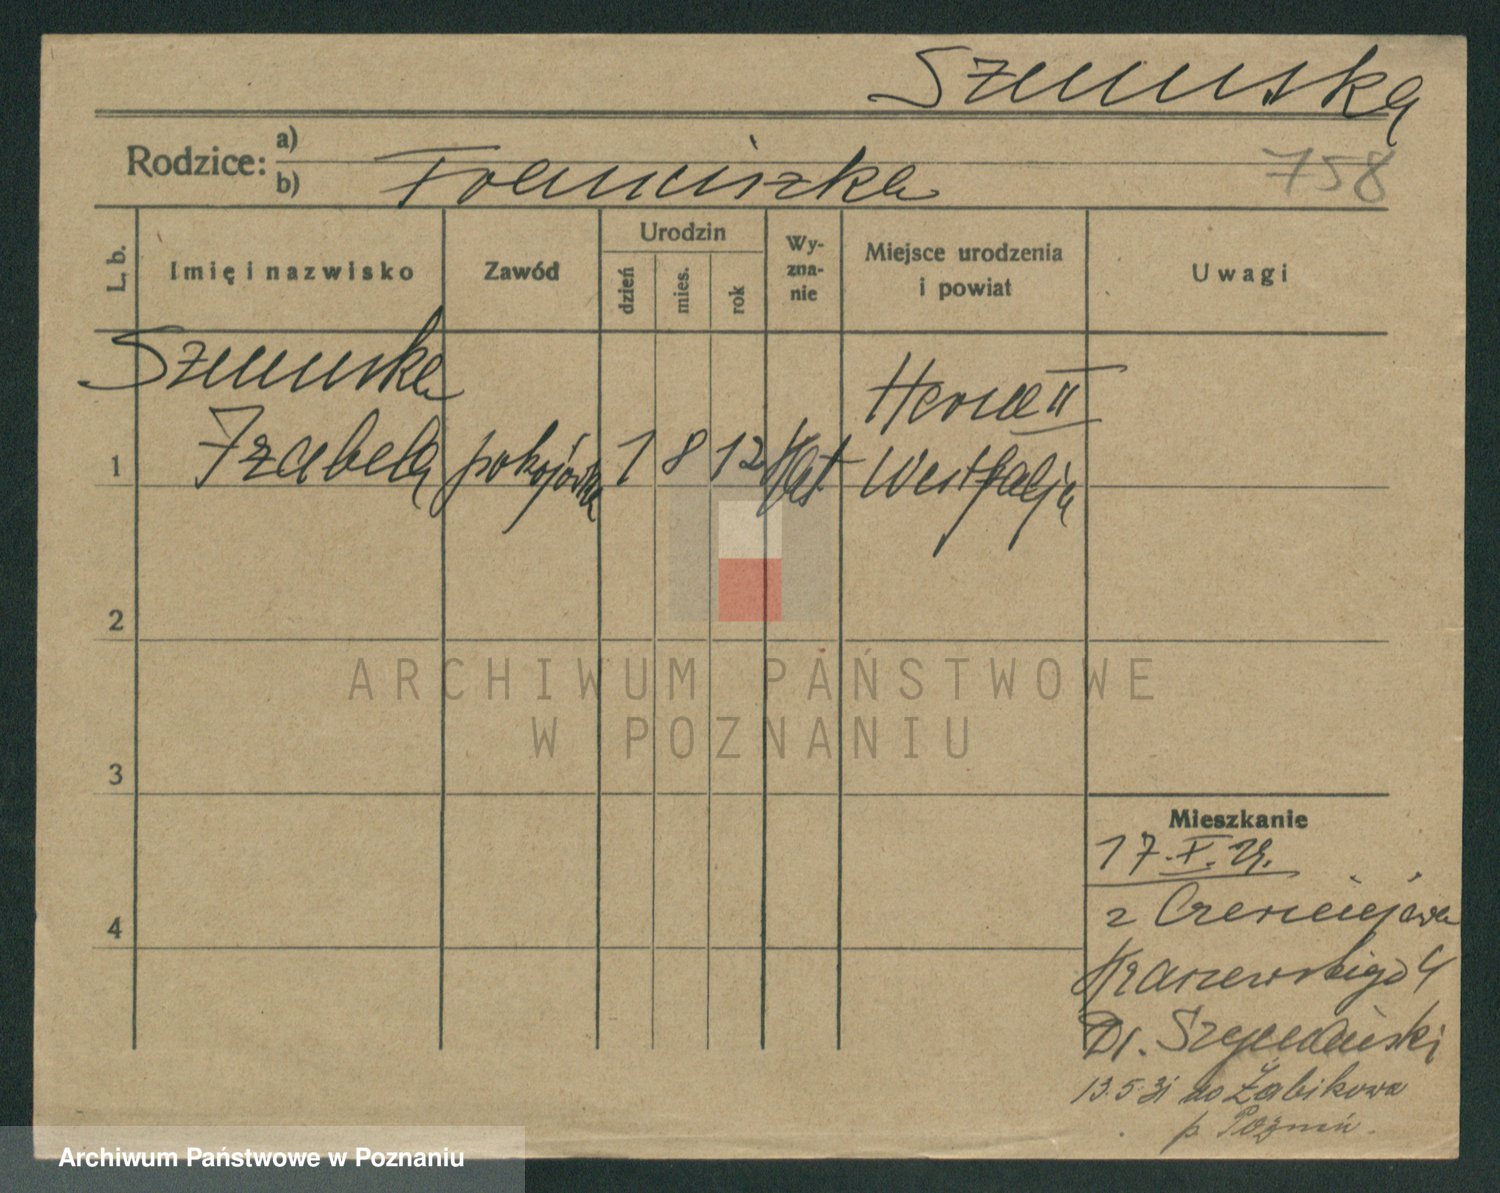 Szumska
Rodzice: a)
b) Franciszka
758
L. b.
Imię i nazwisko
Zawód
Urodzin
dzień
mies.
rok
Wy-
zna-
nie
Miejsce urodzenia
i powiat
Uwagi
Szumska
1 Izabela pokojówka 1 8 12 kat
Herne II
Westfalja
2
3
4
Mieszkanie
17.X.29.
z Czerniejewa
Kraszewskiego 4
Dr.
13.5.31 do Żabikowa
p. Poznań.
ARCHIWUM PAŃSTWOWE
W POZNANIU
Archiwum Państwowe w Poznaniu